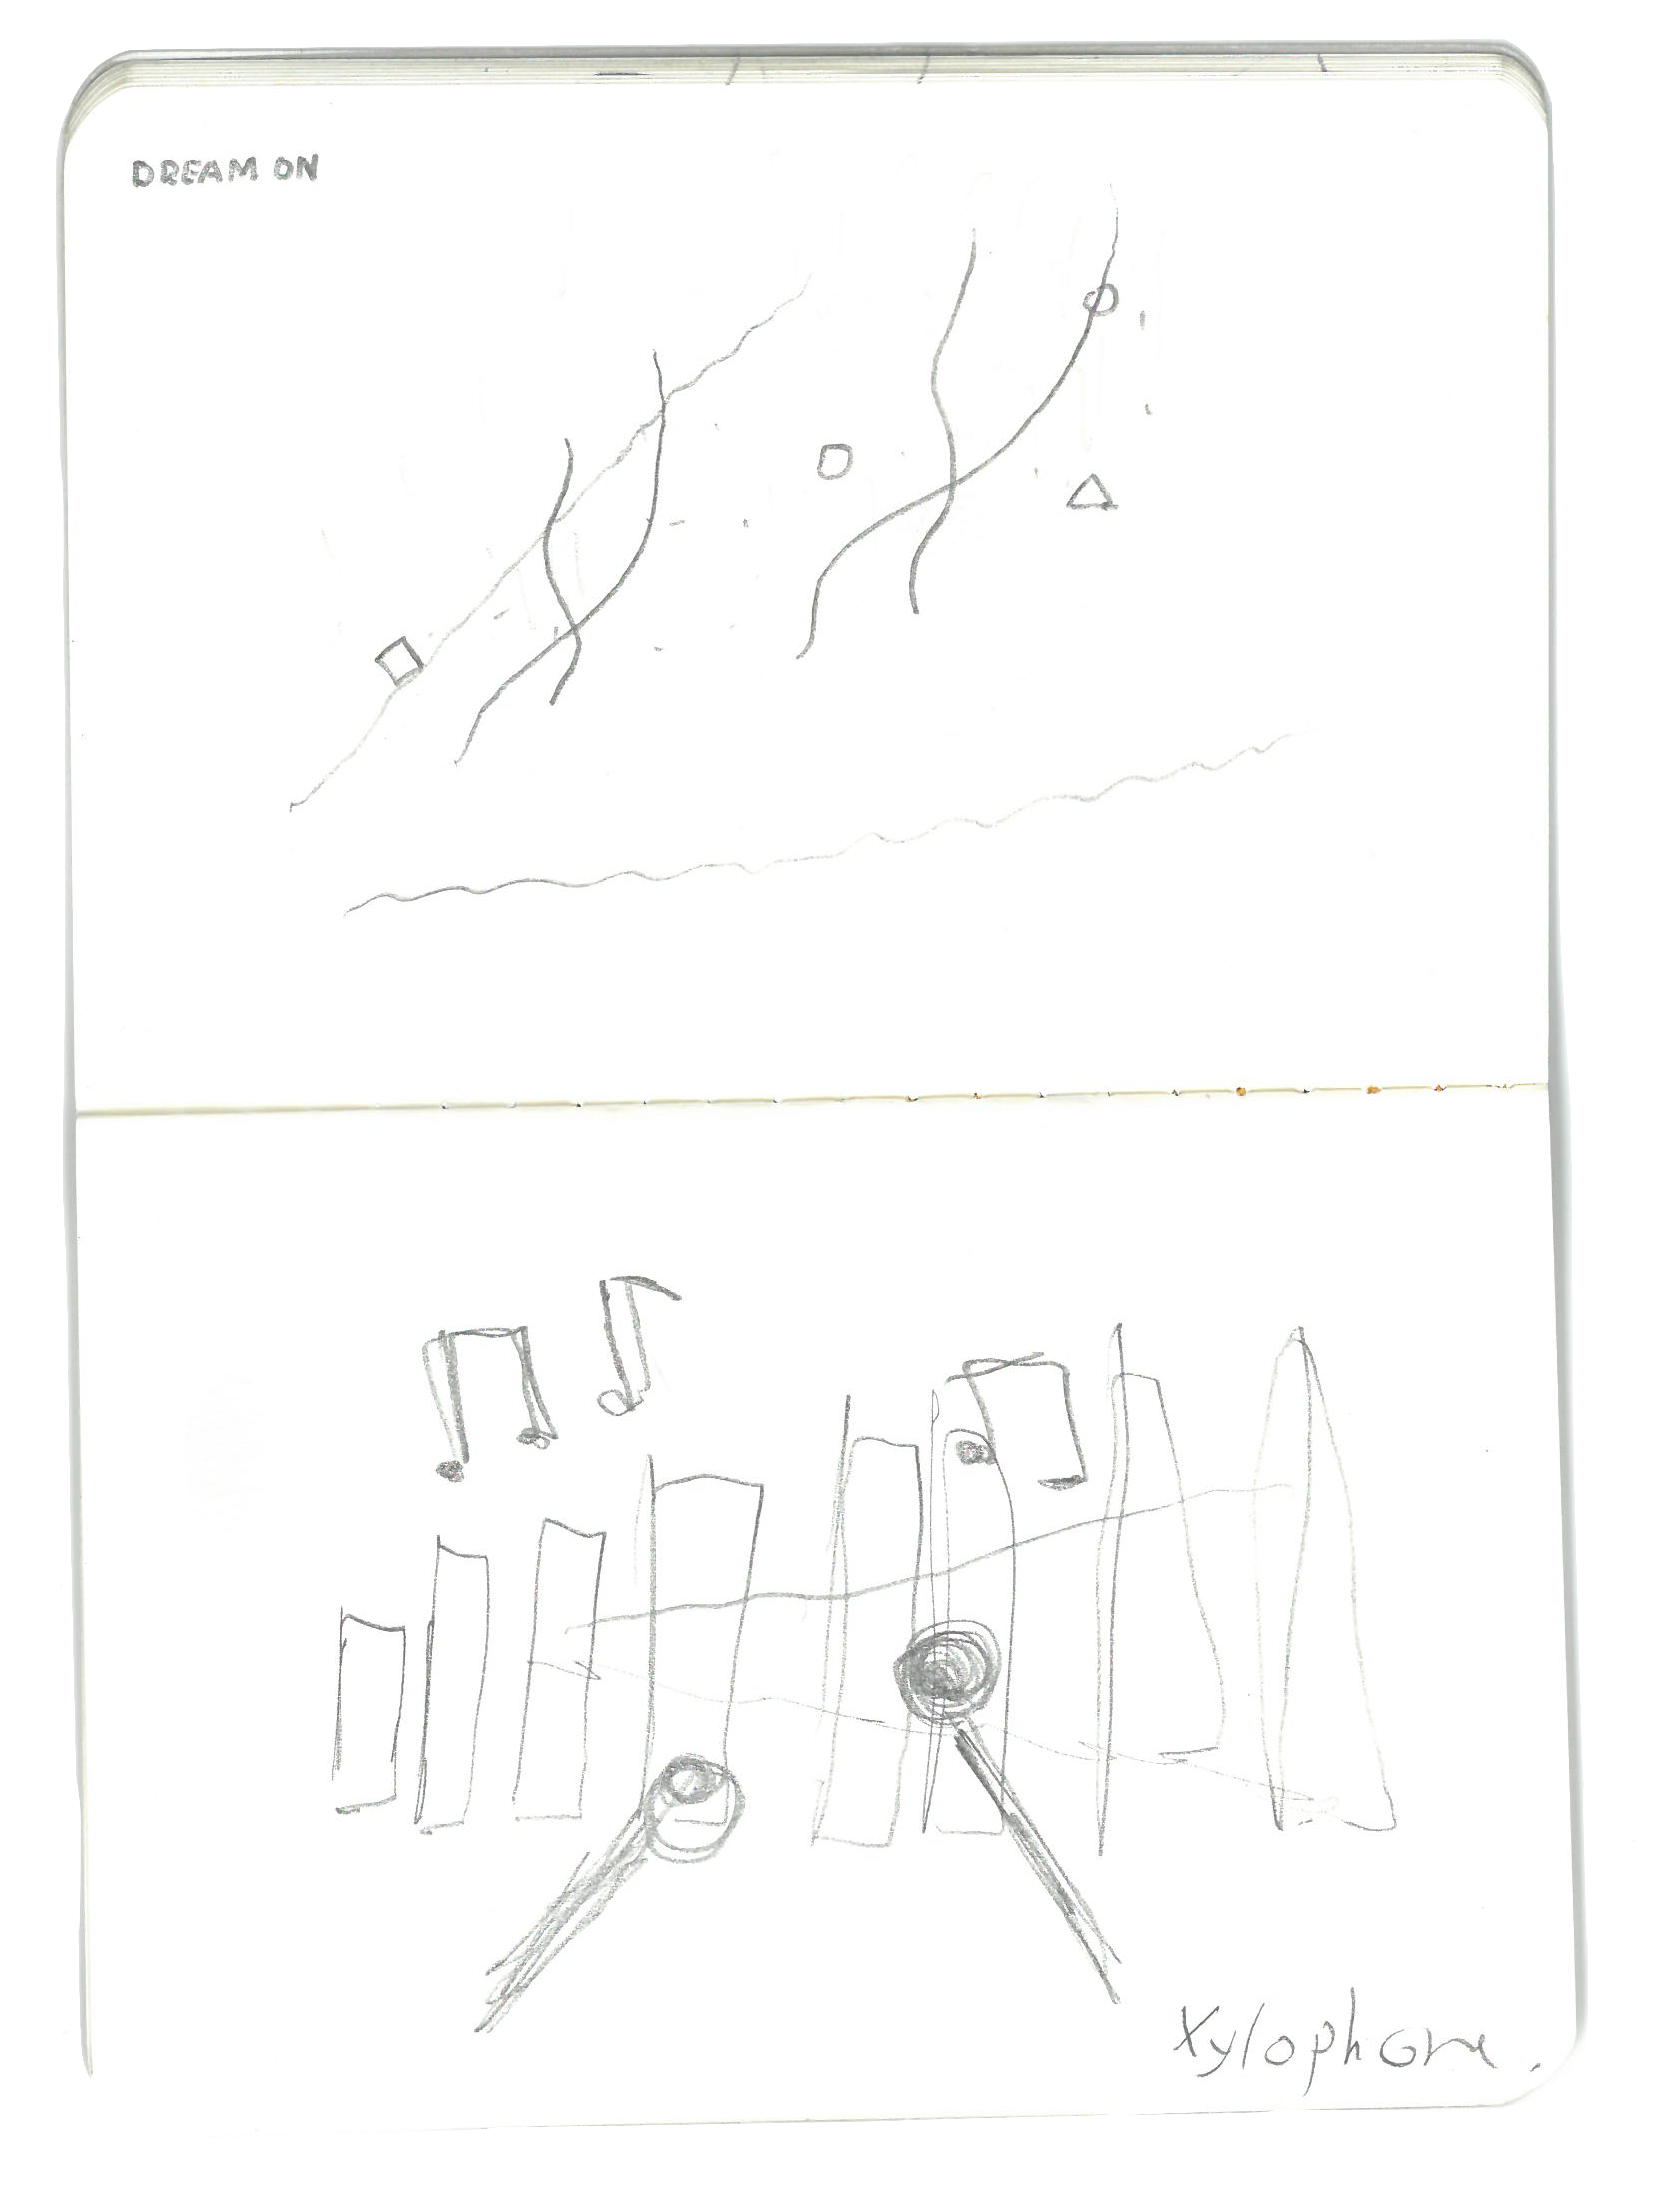 DREAM ON
Xylophone.